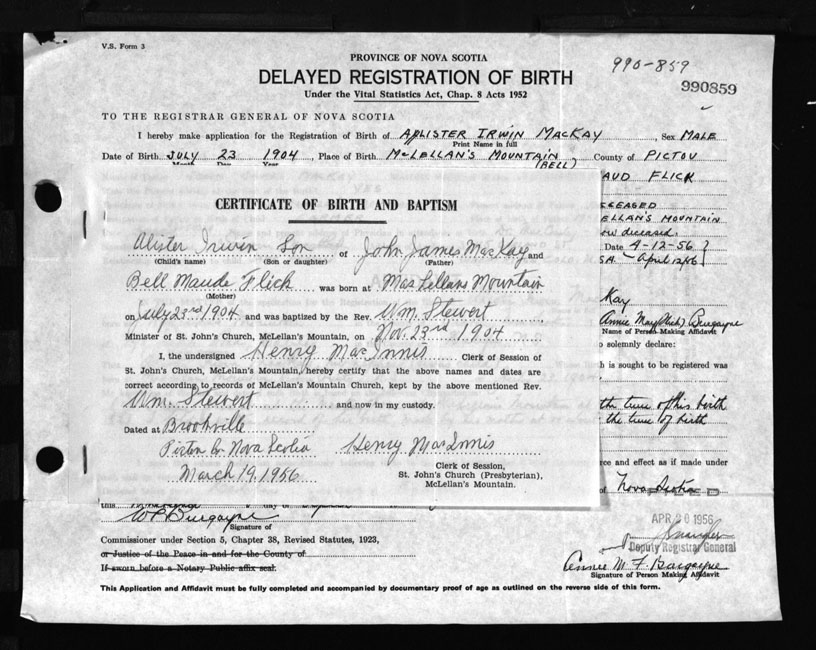 V.S. Form 3
PROVINCE OF NOVA SCOTIA
990-859
DELAYED REGISTRATION OF BIRTH
990859
Under the Vital Statistics Act, Chap. 8 Acts 1952
TO THE REGISTRAR GENERAL OF NOVA SCOTIA
I hereby make application for the Registration of Birth of ALISTER IRWIN MACKAY, Sex MALE
Print Name in full
Date of Birth JULY 23 1904, Place of Birth McLELLAN'S MOUNTAIN County of PICTOU
Month Day Year
(BELL)
AUD FLICK
CERTIFICATE OF BIRTH AND BAPTISM
ECEASED
ELLAN'S MOUNTAIN
ow deceased.
Alister Irwin Son of John James MacKay and
(Child's name) (Son or daughter) (Father)
Date 4-12-56
SA - April 12/56
Bell Maude Flick was born at MacLellans Mountain
(Mother)
Kay
on July 23rd 1904 and was baptized by the Rev. Wm. Stewert
Annie May (Flick) Burgayne
Name of Person Making Affidavit
Minister of St. John's Church, McLellan's Mountain, on Nov. 23rd 1904
o solemnly declare:
I, the undersigned Henry MacInnis Clerk of Session of
h is sought to be registered was
St. John's Church, McLellan's Mountain, hereby certify that the above names and dates are
correct according to records of McLellan's Mountain Church, kept by the above mentioned Rev.
Wm. Stewert and now in my custody.
the time of his birth
the time of birth
Dated at Brookville
Pictou Co. Nova Scotia Henry MacInnis
March 19, 1956
Clerk of Session,
St. John's Church (Presbyterian),
McLellan's Mountain.
rce and effect as if made under
of Nova Scotia
this day of
W P Burgayne
Signature of
APR 20 1956
Commissioner under Section 5, Chapter 38, Revised Statutes, 1923,
Deputy Registrar General
or Justice of the Peace in and for the County of
If sworn before a Notary Public affix seal.
Annie M. F. Burgayne
Signature of Person Making Affidavit
This Application and Affidavit must be fully completed and accompanied by documentary proof of age as outlined on the reverse side of this form.